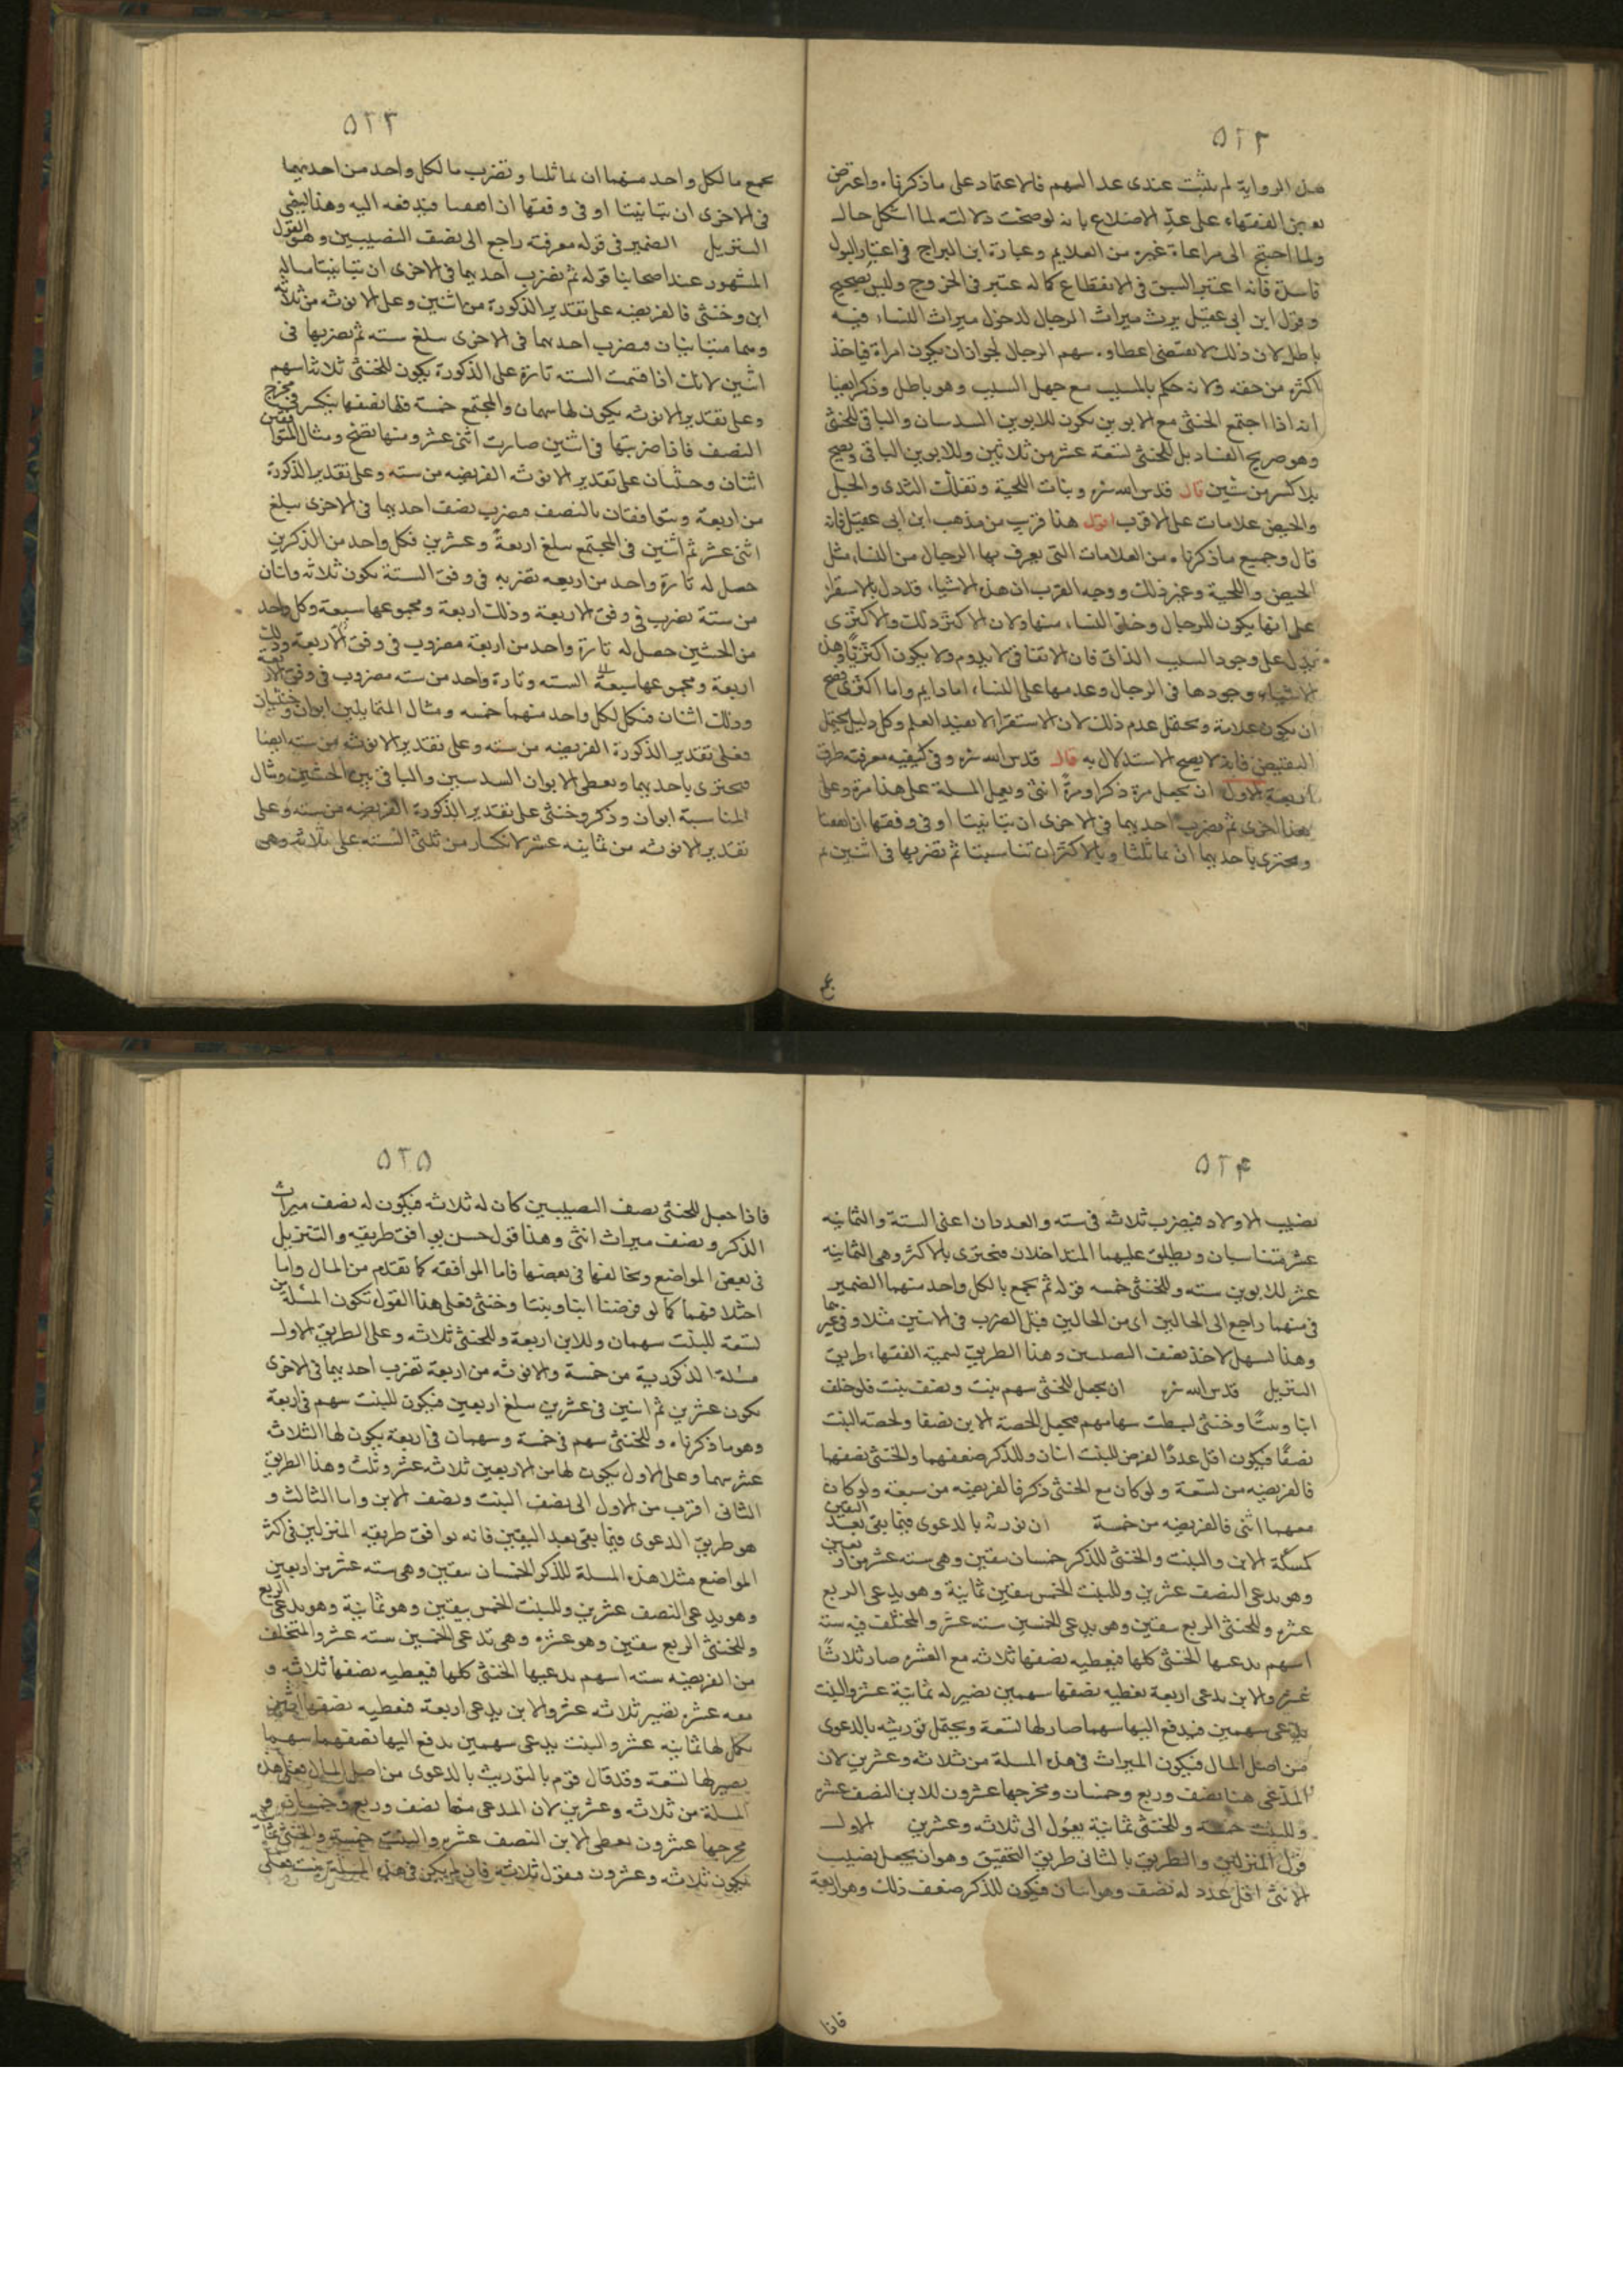 ٥٢٢
هذه الرواية لم يثبت عندى عد السهم فالاعتماد على ما ذكرناه واعترض
بعض الفقهاء على عدّ الاضلاع بانه لو صحت دلالته لما اشكل حاله
ولما احتيج الى مراعاة غيره من العلايم وعبارة ابن البراج فى اعتبار البول
فاسدة فانه اعتبر السبق فى الانقطاع كما له عتبر فى الخروج وليس بصحيح
وقول ابن ابى عقيل يرث ميراث الرجال لدخول ميراث النساء فيه
باطل لان ذلك لا يقتضى اعطاوه سهم الرجال لجواز ان يكون امراة فياخذ
اكثر من حقه ولانه حكم بالمسبب مع جهل السبب وهو باطل وذكر ايضا
انه اذا اجتمع الخنثى مع الابوين يكون للابوين السدسان والباقى للخنثى
وهو صريح الفساد بل للخنثى تسعة عشر من ثلاثين وللابوين الباقى ويصح
بلا كسر من ستين قال قدس الله سره وبنات اللحية وتفلك الثدى والحبل
والحيض علامات على الاقرب اقول هذا قريب من مذهب ابن ابى عقيل فانه
قال وجميع ما ذكرناه من العلامات التى يعرف بها الرجال من النساء مثل
الحيض واللحية وغير ذلك ووجه القرب ان هذه الاشياء قد دل بالاستقرا
على انها يكون للرجال وخلق النساء منها ولان الاكثر ذلك والاكثرى
يدل على وجود السبب الذاتى فان الاتفاقى لا يدوم ولا يكون اكثريا وهذه
الاشياء وجودها فى الرجال وعدمها على النساء اما دايم واما اكثرى فصح
ان يكون علامة ويحتمل عدم ذلك لان الاستقرا لا يفيد العلم وكل دليل يحتمل
النقيض فانه لا يصح الاستدلال به قال قدس الله سره وفى كيفيه معرفته طرق
اربعة الاول ان تجعل مرة ذكرا ومرة انثى وتعمل المسلة على هذا مرة وعلى
هذا اخرى ثم تضرب احديهما فى الاخرى ان تباينتا او فى وفقها ان اتفقتا
ويجتزى باحديهما ان تماثلتا وبالاكثر ان تناسبتا ثم تضربها فى اثنين ثم
٥٢٣
تجمع ما لكل واحد منهما ان تماثلتا وتضرب ما لكل واحد من احديهما
فى الاخرى ان تباينتا او فى وفقها ان اتفقتا فيدفعه اليه وهذا
التنزيل الضمير فى قوله معرفته راجع الى نصف النصيبين وهو القول
المشهور عند اصحابنا قوله ثم تضرب احديهما فى الاخرى ان تباينتا مثاله
ابن وخنثى فالفريضه على تقدير الذكورة من اثنين وعلى الانوثه من ثلاثه
وهما متباينان فتضرب احديهما فى الاخرى تبلغ سته ثم تضربها فى
اثنين لانك اذا قسمت السته تارة على الذكورة يكون للخنثى ثلاثة اسهم
وعلى تقدير الانوثه يكون لها سهمان والمجتمع خمسة فلها نصفها ينكسر فى مخرج
النصف فاذا ضربتها فى اثنين صارت اثنى عشر ومنها تصح ومثال المتوافقين
اثنان وخنثيان على تقدير الانوثه الفريضه من سته وعلى تقدير الذكورة
من اربعة ومتوافقان بالنصف فتضرب نصف احديهما فى الاخرى تبلغ
اثنى عشر ثم اثنين فى المجتمع تبلغ اربعة وعشرين فكل واحد من الذكرين
حصل له تارة واحد من اربعه تضربه فى وفق الستة تكون ثلاثه واثان
من ستة تضرب فى وفق الاربعة وذلك اربعة ومجموعها سبعة وكل واحد
من الخنثيين حصل له تارة واحد من اربعة مضروب فى وفق الاربعة وذلك
اربعة ومجموعها سبعة السته وتارة واحد من سته مضروب فى وفق الاربعة
وذلك اثنان فكمل لكل واحد منهما خمسه ومثال المتماثلين ابوان وخنثيان
فعلى تقدير الذكورة الفريضه من سته وعلى تقدير الانوثه من سته ايضا
فيجتزى باحديهما ويعطى الابوان السدسين والباقى بين الخنثيين ومثال
المناسبة ابوان وذكر وخنثى على تقدير الذكورة الفريضه من سته وعلى
تقدير الانوثه من ثمانيه عشر لانكسار من ثلثى السته على ثلاثه وهى
٥٢٤
نصيب الاولاد فيضرب ثلاثه فى سته والعددان اعنى الستة والثمانيه
عشر متناسبان ويطلق عليهما المتداخلان فيجتزى بالاكثر وهى الثمانيه
عشر للابوين سته وللخنثى خمسه قوله ثم يجمع ما لكل واحد منهما الضمير
فى منهما راجع الى الحالين اى من الحالين قبل الضرب فى الاثنين مثلا وفى غيرهما
وهذا لسهل لاخذ نصف النصيبين وهذا الطريق تسميه الفقهاء طريق
التنزيل قدس الله سره ان يجعل للخنثى سهم بنت ونصف بنت فلو خلف
ابنا وبنتا وخنثى لبسطت سهامهم فيجعل لحصة الابن نصفا ولحصه البنت
نصفا فيكون اقل عددا لفرض للبنت اثنان وللذكر ضعفهما وللخنثى نصفهما
فالفريضه من تسعة ولو كان مع الخنثى ذكر فالفريضه من سبعة ولو كان
معهما انثى فالفريضه من خمسة ان نورثه بالدعوى فيما بقى بعد اليقين
كمسئلة الابن والبنت والخنثى للذكر خمسان بيقين وهى سته عشر من اربعين
وهو يدعى النصف عشرين وللبنت الخمس بيقين ثمانية وهو يدعى الربع
عشره وللخنثى الربع بيقين وهو يدعى الخمسين سته عشر والمختلف فيه سته
اسهم يدعيها الخنثى كلها فيعطيه نصفها ثلاثه مع العشره صار ثلاثا
عشره والابن يدعى اربعة نعطيه نصفها سهمين نصير له ثمانية عشر والبنت
يدعى سهمين فيدفع اليها سهما صار لها تسعة ويحتمل توريثه بالدعوى
من اصل المال فيكون الميراث فى هذه المسلة من ثلاثه وعشرين لان
المدعى هنا نصف وربع وخمسان ومخرجها عشرون للابن النصف عشر
وللبنت خمسه وللخنثى ثمانية يعول الى ثلاثه وعشرين الاول
قول المنزلين والطريق بالثانى طريق التحقيق وهو ان يجعل نصيب
الانثى اقل عدد له نصف وهو اثنان فيكون للذكر ضعف ذلك وهو اربعة
فاذا
٥٢٥
فاذا جعل للخنثى نصف النصيبين كان له ثلاثه فيكون له نصف ميراث
الذكر ونصف ميراث انثى وهذا قول حسن يوافق طريقه والتنزيل
فى بعض المواضع ويخالفها فى بعضها فاما الموافقه كما تقدم من المال واما
اختلافهما كما لو فرضنا ابنا وبنتا وخنثى فعلى هذا القول تكون المسئلة من
تسعة للبنت سهمان وللابن اربعة وللخنثى ثلاثه وعلى الطريق الاول
مسئلة الذكوريه من خمسة والانوثه من اربعة تضرب احديهما فى الاخرى
تكون عشرين ثم اثنين فى عشرين تبلغ اربعين فيكون للبنت سهم فى اربعة
وهو ما ذكرناه وللخنثى سهم فى خمسة وسهمان فى اربعة يكون لها الثلاثه
عشر سهما وعلى الاول يكون لها من الاربعين ثلاثه عشر وثلث وهذا الطريق
الثانى اقرب من الاول الى نصف البنت ونصف الابن واما الثالث و
هو طريق الدعوى فيما بقى بعد اليقين فانه يوافق طريقه المنزلين فى اكثر
المواضع مثلا هذه المسلة للذكر الخمسان بيقين وهى سته عشر من اربعين
وهو يدعى النصف عشرين وللبنت الخمس بيقين وهو ثمانية وهو يدعى الربع
وللخنثى الربع بيقين وهو عشره وهى تدعى الخمسين سته عشر والمتخلف
من الفريضه سته اسهم يدعيها الخنثى كلها فيعطيه نصفها ثلاثه و
معه عشره نصير ثلاثه عشر والابن يدعى اربعة فنعطيه نصفها اثنين
تكمل لها ثمانيه عشر والبنت يدعى سهمين يدفع اليها نصفهما سهما
نصير لها تسعة وقد قال قوم بالتوريث بالدعوى من اصل المال فعلى هذه
المسلة من ثلاثه وعشرين لان المدعى منها نصف وربع وخمسان و
مخرجها عشرون يعطى الابن النصف عشره والبنت خمسه والخنثى ثمانيه
يكون ثلاثه وعشرون ونقول ثلاثه فان لم يكن فى هذه المسلة بنت فعلى